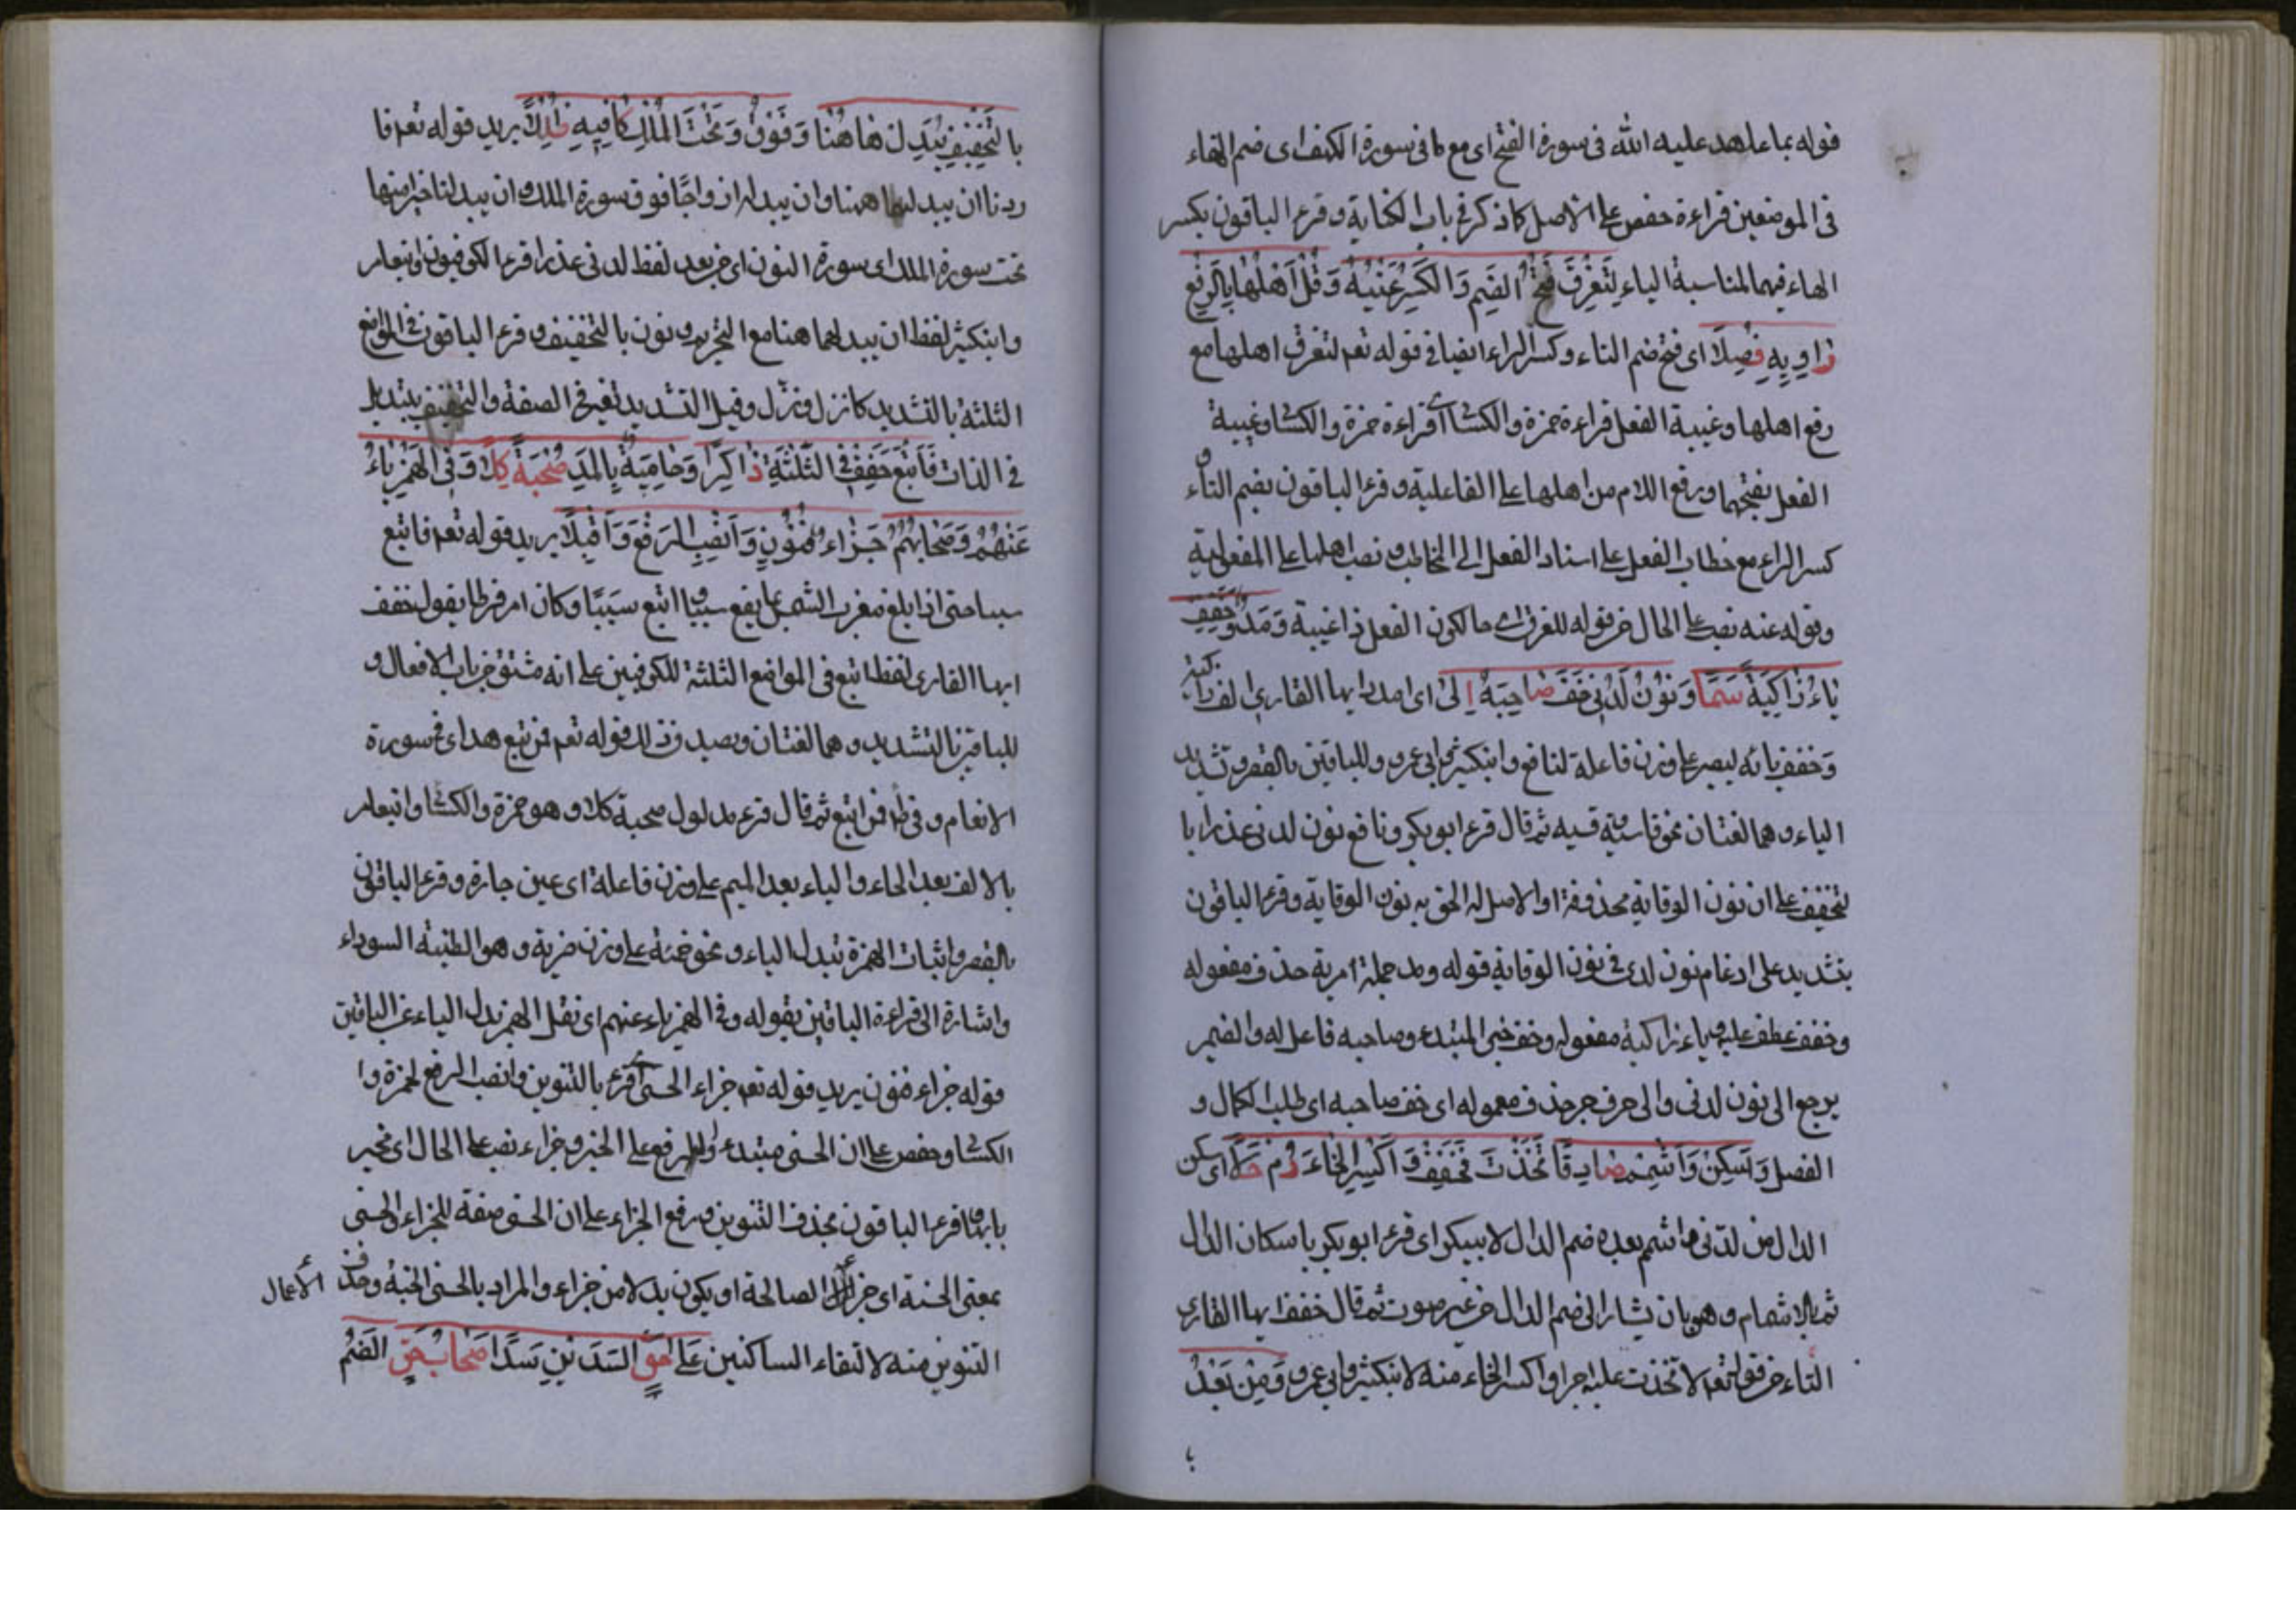 قوله بما عاهد عليه الله فى سورة الفتح اى مع ما فى سورة الكهف اى ضم الهاء
فى الموضعين قراءة حفص على الاصل كما ذكر فى باب الكناية وقرء الباقون بكسر
الهاء فيهما لمناسبة الياء لِتَغْرَقَ فَتْحُ الضَّمِ وَالكَسْرِ غَيْبَةً وَقُلْ اَهْلُهَا بِالرَّفْعِ
رَاوِيهِ فَصِلَا اى فتح ضم التاء وكسر الراء ايضا فى قوله تعم لتغرق اهلها مع
رفع اهلها وغيبة الفعل قراءة حمزة والكسائى قراءة حمزة والكسا وغيبة
الفعل بفتحهما ورفع اللام من اهلها على الفاعلية وقرء الباقون بضم التاء و
كسر الراء مع خطاب الفعل على اسناد الفعل الى المخاطب ونصب اهلها على المفعولية
وقوله غيبة نصب على الحال من قوله للغرق اى حال كون الفعل ذا غيبة وَمُدَّ وَخَفِّفْ
يَاءَ زَاكِيَةً سَمَا وَنُونُ لَدُنِى خَفَّ صَاحِبَهُ اِلَى اى امدد ايها القارى الف زاكية
وخفف يائه ليصير على وزن فاعلة لنافع وابن كثير وابى عمرو وللباقين بالقصر وتشديد
الياء وهما لغتان نحو قاسية وقسية ثم قال قرء ابو بكر ونافع نون لدنى عذرا با
لتخفيف على ان نون الوقاية محذوفة او الاصل لد الحق به نون الوقاية وقرء الباقون
بتشديد على ادغام نون لدن فى نون الوقاية قوله ومد جملة امرية حذف مفعوله
وخفف عطف عليه وياء زاكية مفعوله وخف خبر المبتدء وصاحبه فاعل له والضمير
يرجع الى نون لدنى والى حرف جر حذف معموله اى خف صاحبه اى طلب الكمال و
الفصل وَسَكِّنْ وَاَشْمِمْ ضَمَّ صَادِقًا تَخِذْتَ فَخَفِّفْ وَاكْسِرِ الخَاءَ دُمْ حَلَا اى سكن
الدال من لدنى واشمم بعده ضم الدال لابى بكر اى قرء ابو بكر باسكان الدال
ثم بالاشمام وهو بان يشار الى ضم الدال من غير صوت ثم قال خفف ايها القارى
التاء من قوله تعم لاتخذت عليه اجرا واكسر الخاء منه لابن كثير وابى عمرو وَمِنْ بَعْدُ
با
بِالتَّخْفِيفِ يُبَدِّلَ هَاهُنَا وَفَوْقَ وَتَحْتَ المُلْكِ كَافِيهِ ظَلَّلَا يريد قوله تعم فا
ردنا ان يبدلهما ههنا وان يبدله ازواجًا فوق سورة الملك وان يبدلنا خيرا منها
تحت سورة الملك اى سورة النون اى من بعد لفظ لدنى عذرا قرء الكوفيون وابن عامر
وابن كثير لفظ ان يبدلهما هنا مع التحريم ونون بالتخفيف وقرء الباقون فى المواضع
الثلثة بالتشديد كانزل ونزّل وقيل التشديد تغير فى الصفة والتخفيف تبديل
فى الذات فَاَتْبَعَ خَفِّفْ فِى الثَّلثَةِ ذَاكِرًا وَحَامِيَةً بِالمَدِّ صُحْبَةُ كَلَا وَفِى الهَمْزِ يَاءُ
عَنْهُمُ وَصِحَابُهُمْ جَزَاءُ فَنَوِّنْ وَانْصِبِ الرَّفْعَ وَاَقْبِلَا يريد قوله تعم فاتبع
سببا حتى اذا بلغ مغرب الشمس ثم اتبع سببا اتبع سَبَبًا وكان امر فرطا يقول خفف
ايها القارى لفظ اتبع فى المواضع الثلثة للكوفيين على انه مشتق من باب الافعال و
للباقين بالتشديد وهما لغتان وبصيد وزن قوله تعم فمن تبع هداى فى سورة
الانعام وفى طه فمن اتبع ثم قال قرء مدلول صحبة كلا وهو حمزة والكسا وابن عامر
بالالف بعد الحاء والياء بعد الميم على وزن فاعلة اى عين حارة وقرء الباقون
بالقصر واثبات الهمزة تبدل الياء ونحو حمئة على وزن ضربة وهو الطينة السوداء
واشارة الى قراءة الباقين بقوله وفى الهمز ياء عنهم اى نقل الهمز بدل الياء عن الباقين
قوله جزاء فنون يريد قوله تعم جزاء الحسنى اى قرء بالتنوين وانصب الرفع لحمزة وا
الكسا وحفص على ان الحسنى مبتدء وله رفع على الخبر وجزاء نصب على الحال اى مجزيا
بها وقرء الباقون بحذف التنوين ورفع الجزاء على ان الحسنى صفة للجزاء والحسنى
بمعنى الحسنة اى جزاء الصالحة او يكون بدلا من جزاء والمراد بالحسنى الجنة وحذف
الاعمال
التنوين منه لالتقاء الساكنين عَلَى حَقٍّ السَّدَّيْنِ سَدًّا صِحَابُ حَقٍّ الضَّمُّ